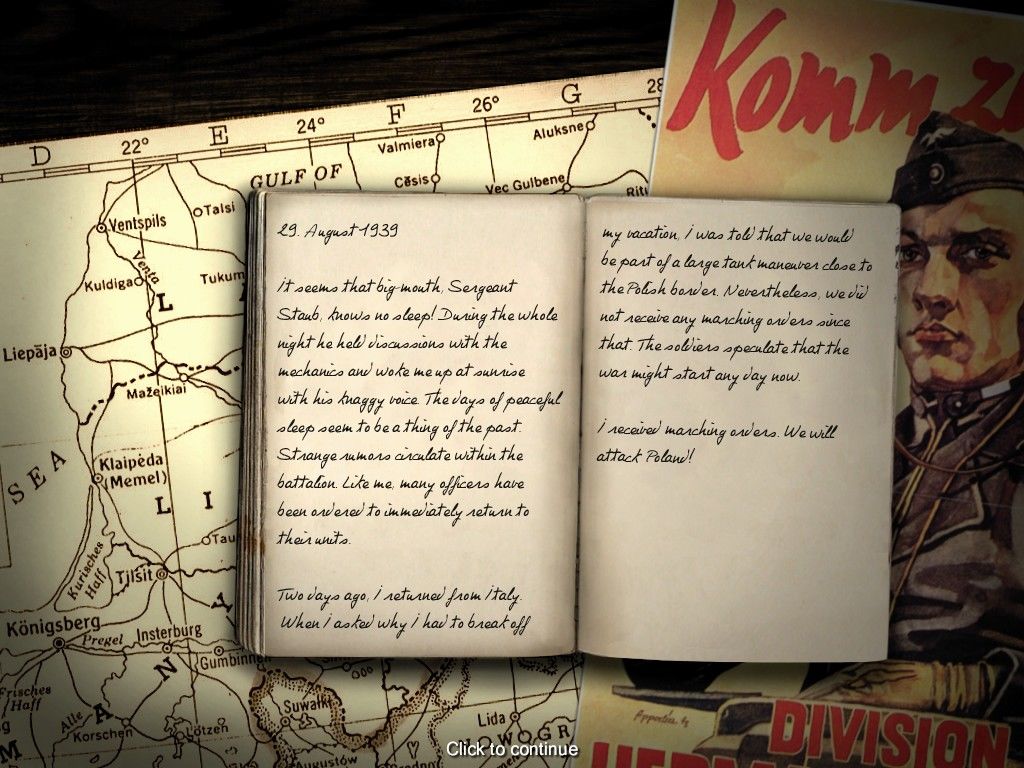 Komm zu
D
22°
E
24°
F
26°
G
28
Valmiera
Aluksne
GULF OF
Cēsis
Vec Gulbene
Ventspils
Talsi
Venta
Kuldiga
Tukum
L
Liepāja
Mažeikiai
SEA
Klaipėda
(Memel)
L I
Tau
Kurisches
Haff
Tjlsit
Königsberg
Pregel
Insterburg
Gumbinnen
N
Frisches
Haff
A
Alle
Korschen
Lötzen
M
Suwałki
Augustów
Lida
NOWOGR
29. August 1939
it seems that big-mouth, Sergeant
Staub, knows no sleep! During the whole
night he held discussions with the
mechanics and woke me up at sunrise
with his knaggy voice. The days of peaceful
sleep seem to be a thing of the past.
Strange rumors circulate within the
battalion. Like me, many officers have
been ordered to immediately return to
their units.
Two days ago, i returned from Italy.
When i asked why i had to break off
my vacation, i was told that we would
be part of a large tank maneuver close to
the Polish border. Nevertheless, we did
not receive any marching orders since
that. The soldiers speculate that the
war might start any day now.
i received marching orders. We will
attack Poland!
DIVISION
Click to continue